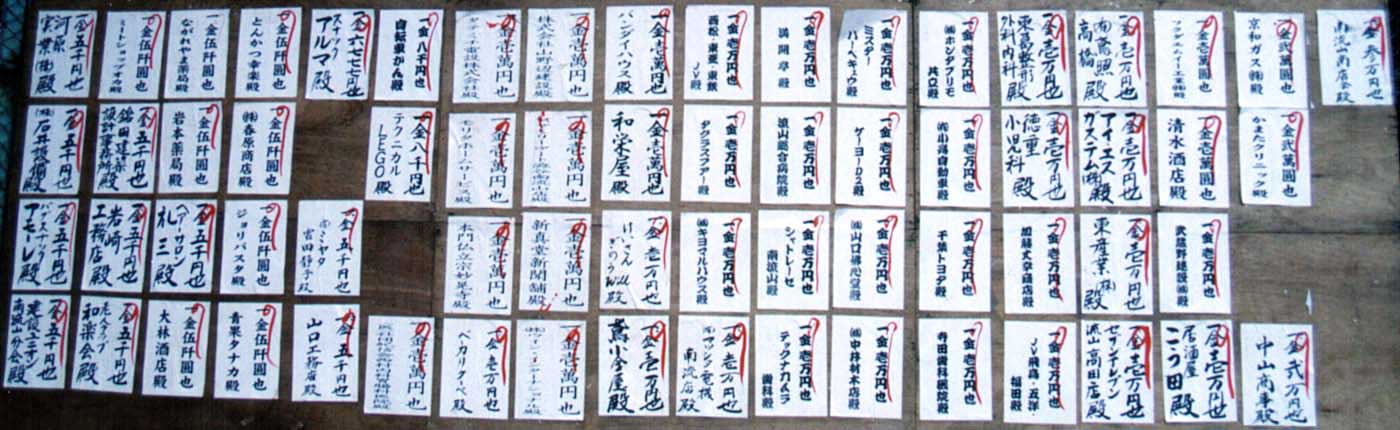 金参万円也
南流山商店会殿
金弐萬円也
京和ガス㈱殿
金壱萬円也
金壱万円也
高橋殿
金壱万円也
東葛整形
外科内科殿
一金壱万円也
一金壱万円也
ミスター
バーベキュウ殿
一金壱万円也
満開亭殿
一金壱万円也
西松・東亜・東鉄
JV殿
一金壱萬円也
バンダイハウス殿
一金壱萬円也
一金壱萬円也
一金八千円也
自転車かん殿
金六七七七円
スナック
アルマ殿
一金伍阡圓也
とんかつ幸楽殿
一金伍阡圓也
ながれやま薬局殿
一金伍阡圓也
ミートショップオオ殿
金五千円也
河原
実業㈱殿
金弐萬円也
かまたクリニック殿
金壱萬円也
清水酒店殿
金壱万円也
アイエス
ガステム㈱殿
金壱万円也
徳重
小児科殿
一金壱万円也
㈲小澤自動車殿
一金壱万円也
ケーヨーD2殿
一金壱万円也
流山総合病院殿
一金壱万円也
一金壱萬円也
和栄屋殿
一金壱萬円也
一金壱萬円也
モリタホームサービス殿
一金八千円也
テクニカル
LEGO殿
一金伍阡圓也
㈱春原商店殿
一金伍阡圓也
岩本薬局殿
金五千円也
鎗田建築
設計事務所殿
金五千円也
㈱石井設備殿
一金壱万円也
武蔵野建設㈱殿
一金壱万円也
加藤丈幸商店殿
金壱万円也
東産業㈱殿
一金壱万円也
千葉トヨタ殿
一金壱万円也
㈲山口佛光堂殿
一金壱万円也
シャトレーゼ
南流山殿
一金壱万円也
㈱キヨマルハウス殿
金壱万円也
一金壱萬円也
新真堂新聞舗殿
一金壱萬円也
本門仏立宗妙晃寺殿
金五千円也
宮田静子殿
一金伍阡圓也
ジョリパスタ殿
金五千円也
ヘアーサロン
札三殿
金五千円也
岩崎
工務店殿
金五千円也
パブスナック
アモーレ殿
金弐万円也
中山商事殿
金壱万円也
居酒屋
こつ田殿
金壱万円也
セブンイレブン
流山高田店殿
一金壱万円也
JV飛島・五洋・
福田殿
一金壱万円也
寺田歯科医院殿
一金壱万円也
㈲中村材木店殿
一金壱万円也
歯科殿
金壱万円也
㈱ヤマダ電機
南流店殿
金壱万円也
鳶小金屋殿
一金壱萬円也
金壱万円也
ベーカリークーベ殿
一金壱萬円也
金五千
山口工務店殿
一金伍阡圓也
青果タナカ殿
一金伍阡圓也
大林酒店殿
金五千円也
老人クラブ
和楽会殿
金五千円也
建設ユニオン
南流山分会殿